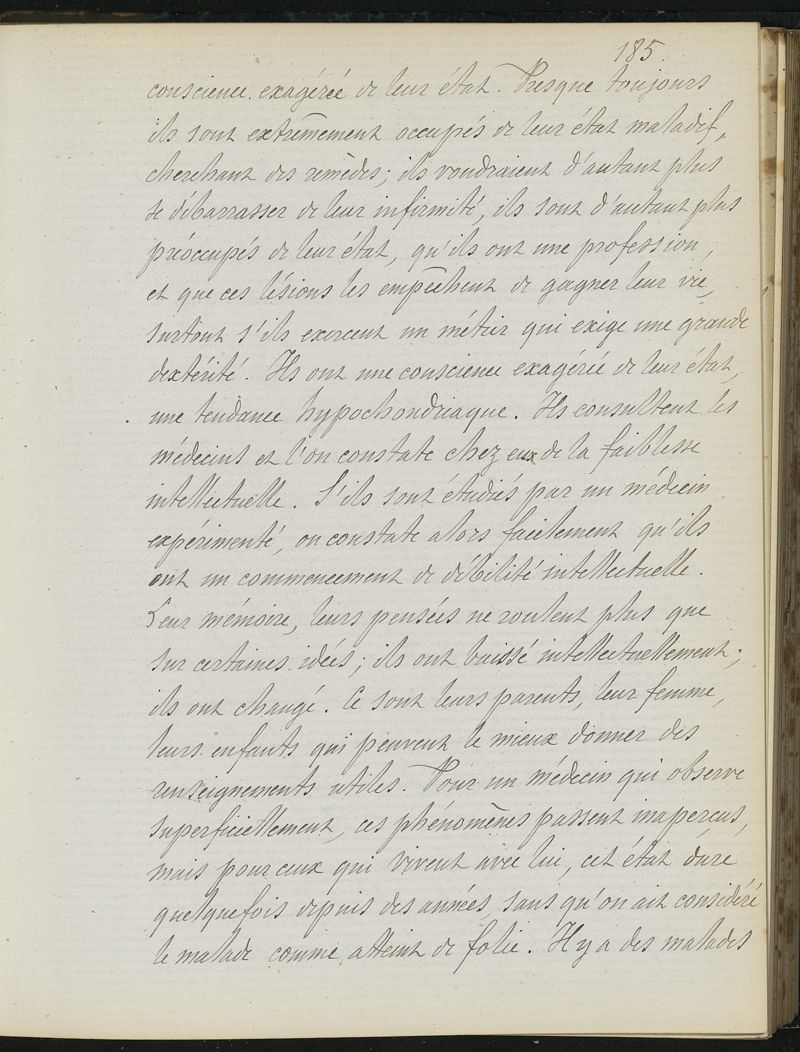 185.
conscience exagérée de leur état. Presque toujours
ils sont extrêmement occupés de leur état maladif,
cherchant des remèdes; ils voudraient d'autant plus
se débarrasser de leur infirmité, ils sont d'autant plus
préoccupés de leur état, qu'ils ont une profession,
et que ces lésions les empêchent de gagner leur vie,
surtout s'ils exercent un métier qui exige une grande
dextérité. Ils ont une conscience exagérée de leur état,
une tendance hypochondriaque. Ils consultent les
médecins et l'on constate chez eux de la faiblesse
intellectuelle. S'ils sont étudiés par un médecin
expérimenté, on constate alors facilement qu'ils
ont un commencement de débilité intellectuelle.
Leur mémoire, leurs pensées ne roulent plus que
sur certaines idées; ils ont baissé intellectuellement;
ils ont changé. Ce sont leurs parents, leur femme,
leurs enfants qui peuvent le mieux donner des
renseignements utiles. Pour un médecin qui observe
superficiellement, ces phénomènes passent inaperçus,
mais pour ceux qui vivent avec lui, cet état dure
quelquefois depuis des années, sans qu'on ait considéré
le malade comme atteint de folie. Il y a des malades